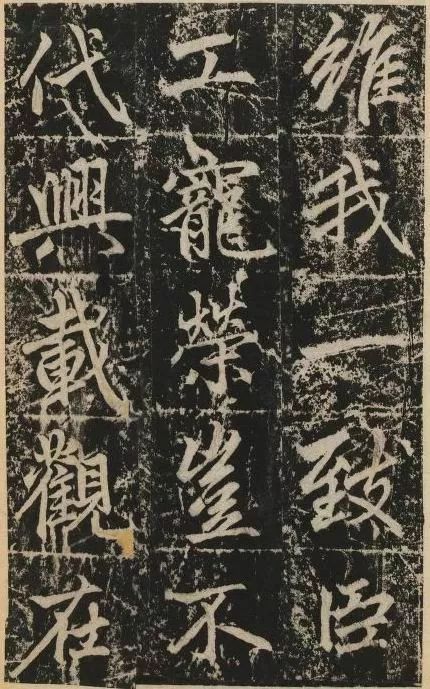 維我一致臣
工寵榮豈不
代興載觀在